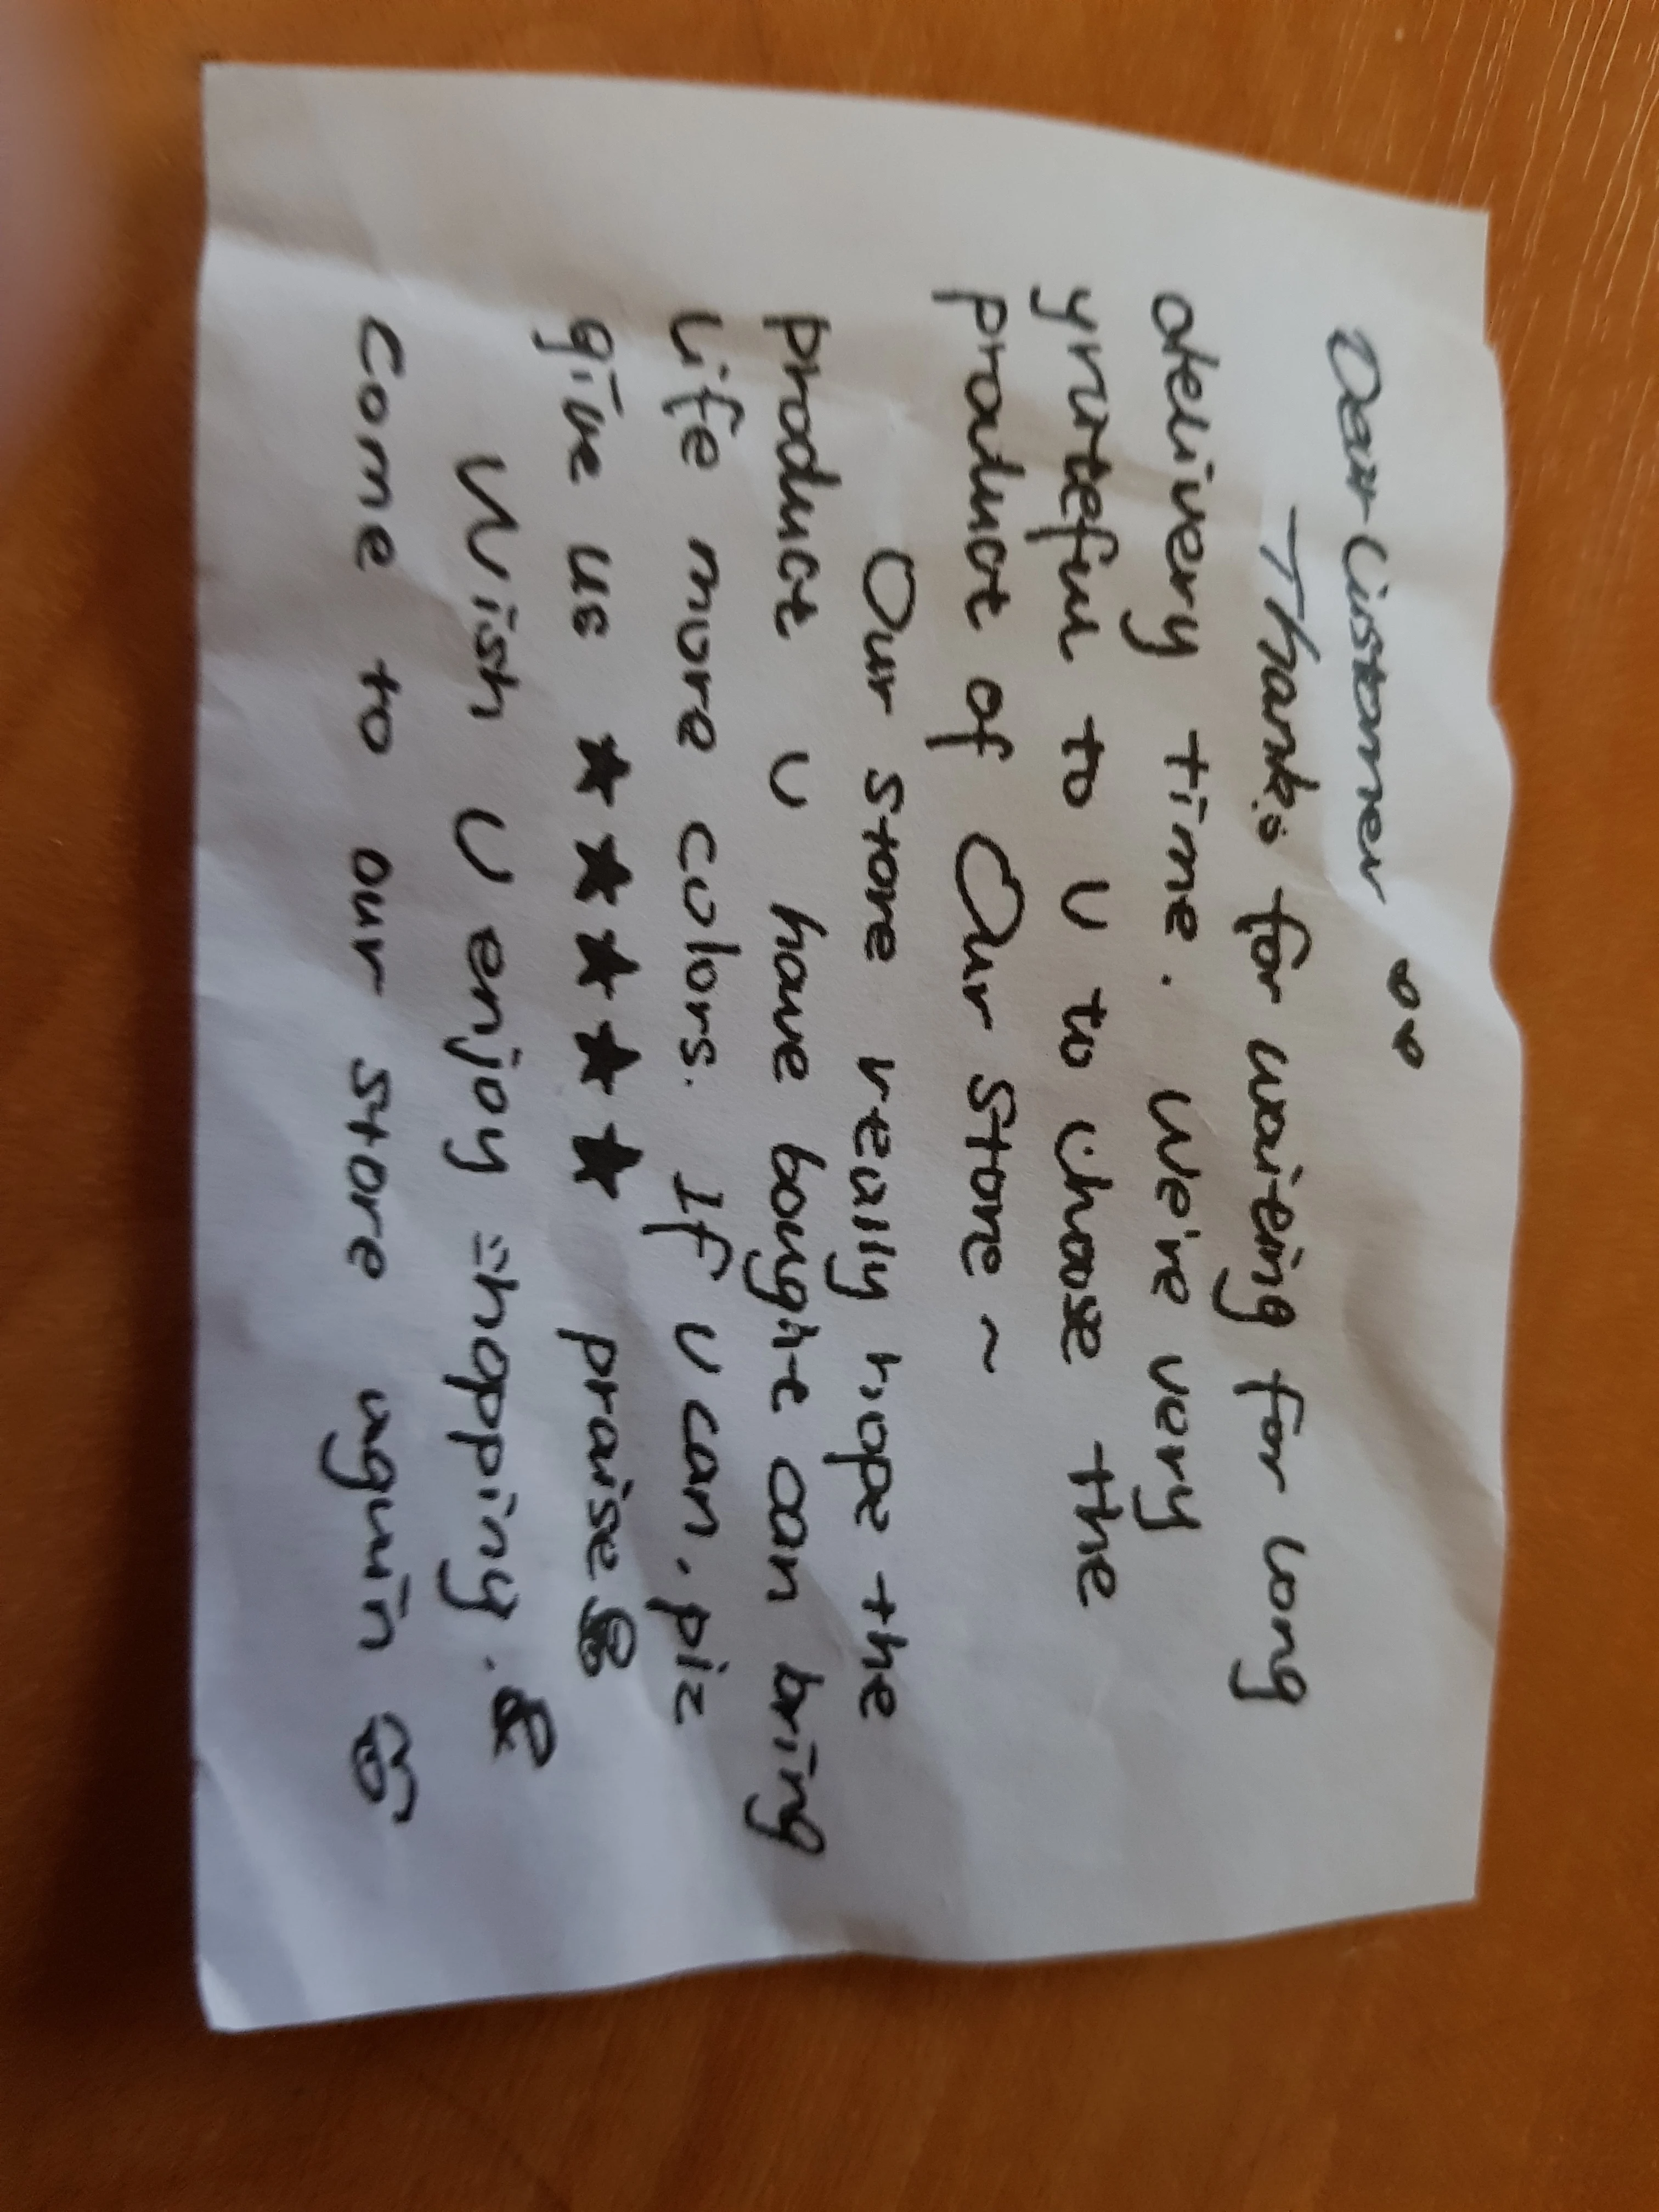 Dear Customer
Thanks for waiting for long
delivery time. We're very
grateful to U to chose the
product of Our Store ~
Our store really hope the
product U have bought can bring
life more colors. If U can. plz
give us ★★★★★ praise
Wish U enjoy shopping.
come to our store again